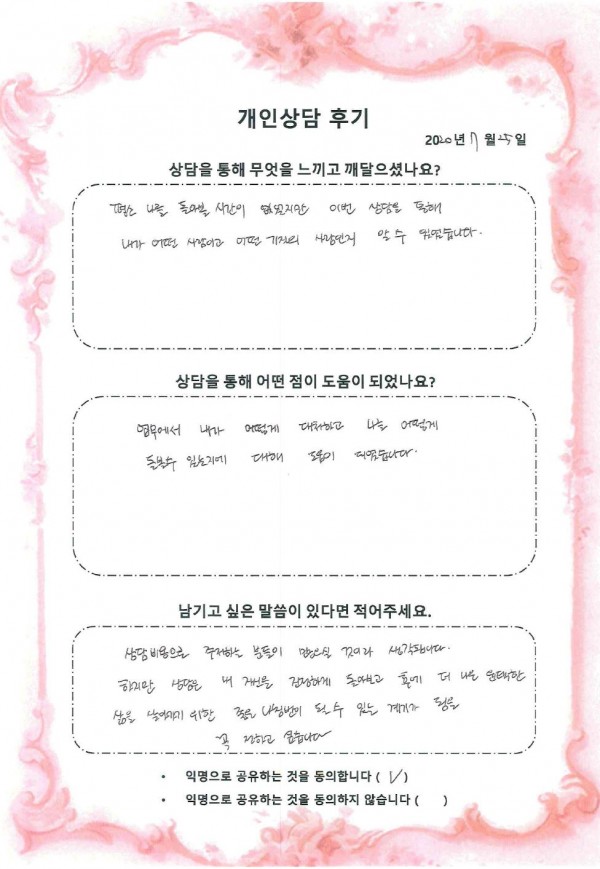 개인상담 후기
2020년 7월 25일
상담을 통해 무엇을 느끼고 깨달으셨나요?
평소 나를 돌아볼 시간이 없었지만 이번 상담을 통해
내가 어떤 사람이고 어떤 기질의 사람인지 알 수 있었습니다.
상담을 통해 어떤 점이 도움이 되었나요?
업무에서 내가 어떻게 대처하고 나를 어떻게
돌볼수 있는지에 대해 도움이 되었습니다.
남기고 싶은 말씀이 있다면 적어주세요.
상담비용으로 주저하는 분들이 많으실 것이라 생각됩니다.
하지만 상담은 내 자신을 진정하게 돌아보고 후에 더 나은 윤택한
삶을 살아가기 위한 좋은 나침반이 될 수 있는 계기가 됨을
꼭 전하고 싶습니다
• 익명으로 공유하는 것을 동의합니다 ( √ )
• 익명으로 공유하는 것을 동의하지 않습니다 ( )